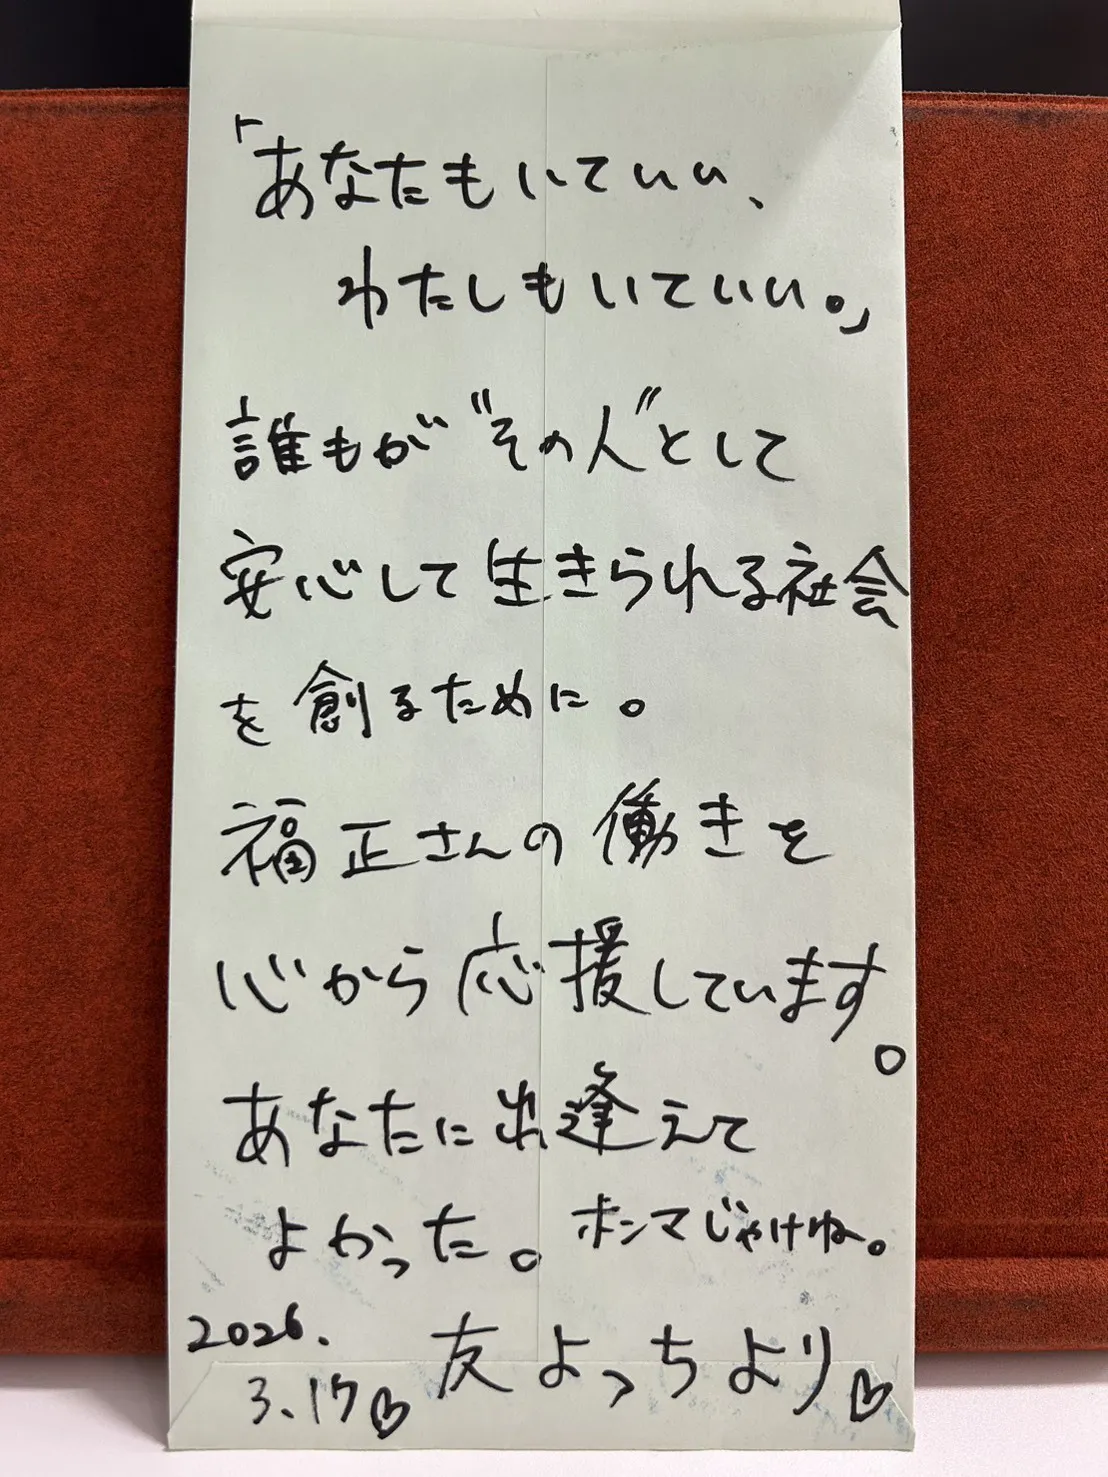 「あなたもいていい、
わたしもいていい。」
誰もが"その人"として
安心して生きられる社会
を創るために。
福正さんの働きを
心から応援しています。
あなたに出逢えて
よかった。ホンマじゃけね。
2026.
3.17♡ 友よっちより♡